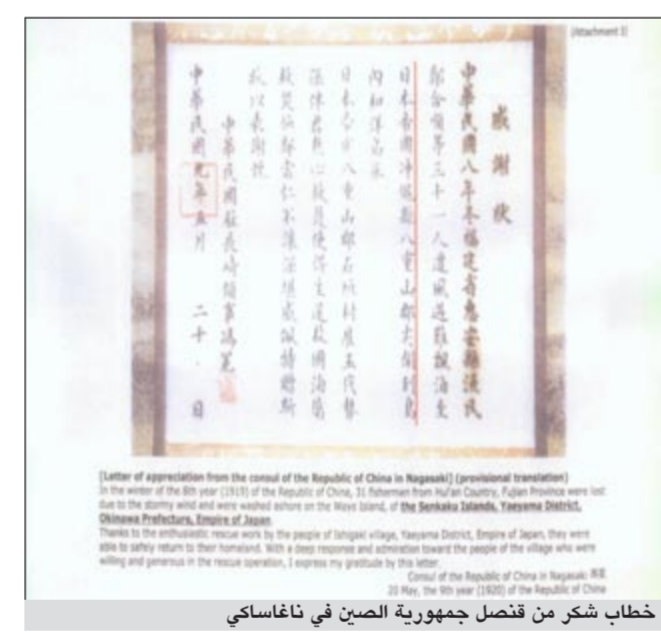 [Attachment
感謝狀
中華民國八年冬福建省惠安縣漁民
郭合順等三十一人遭風遇難飄泊至
日本帝國沖繩縣八重山郡尖閣列島
內和洋島承
日本帝國八重山郡石垣村雇玉代勢
孫伴君熱心救護使得生還故國洵屬
救災恤鄰當仁不讓深堪感佩特贈斯
狀以表謝忱
中華民國駐長崎領事馮冕
中華民國九年五月二十日
[Letter of appreciation from the consul of the Republic of China in Nagasaki] (provisional translation)
In the winter of the 8th year (1919) of the Republic of China, 31 fishermen from Hui'an Country, Fujian Province were lost
due to the stormy wind and were washed ashore on the Wayo Island, of the Senkaku Islands, Yaeyama District,
Okinawa Prefecture, Empire of Japan.
Thanks to the enthusiastic rescue work by the people of Ishigaki village, Yaeyama District, Empire of Japan, they were
able to safely return to their homeland. With a deep response and admiration toward the people of the village who were
willing and generous in the rescue operation, I express my gratitude by this letter.
Consul of the Republic of China in Nagasaki 馮冕
20 May, the 9th year (1920) of the Republic of China
خطاب شكر من قنصل جمهورية الصين في ناغاساكي